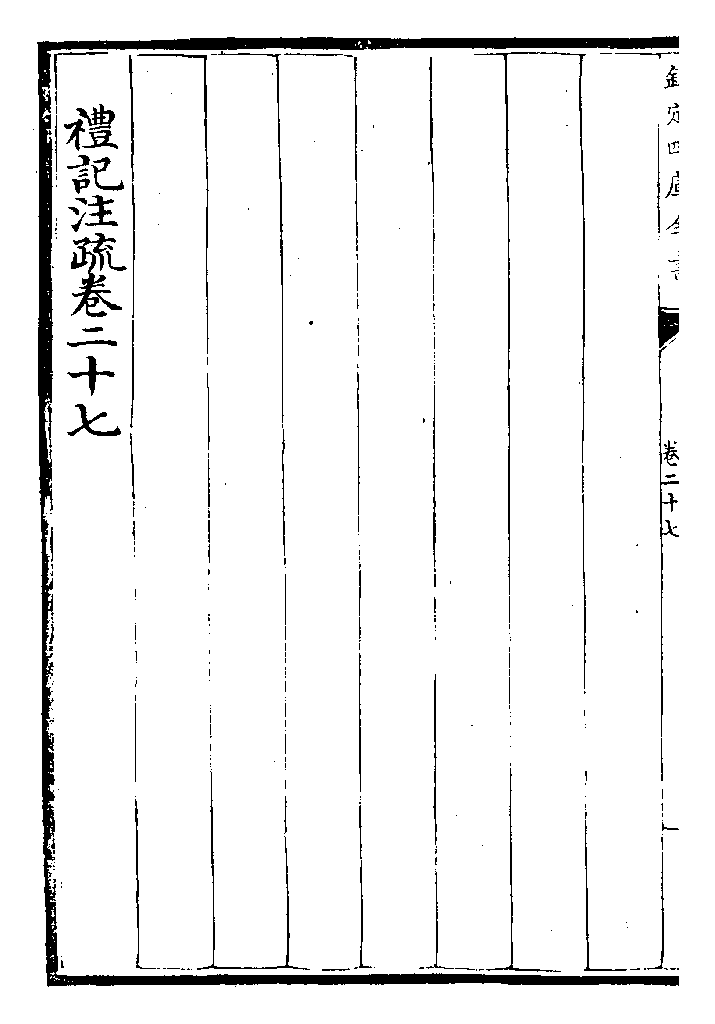 欽定四庫全書
卷二十七
禮記注疏卷二十七